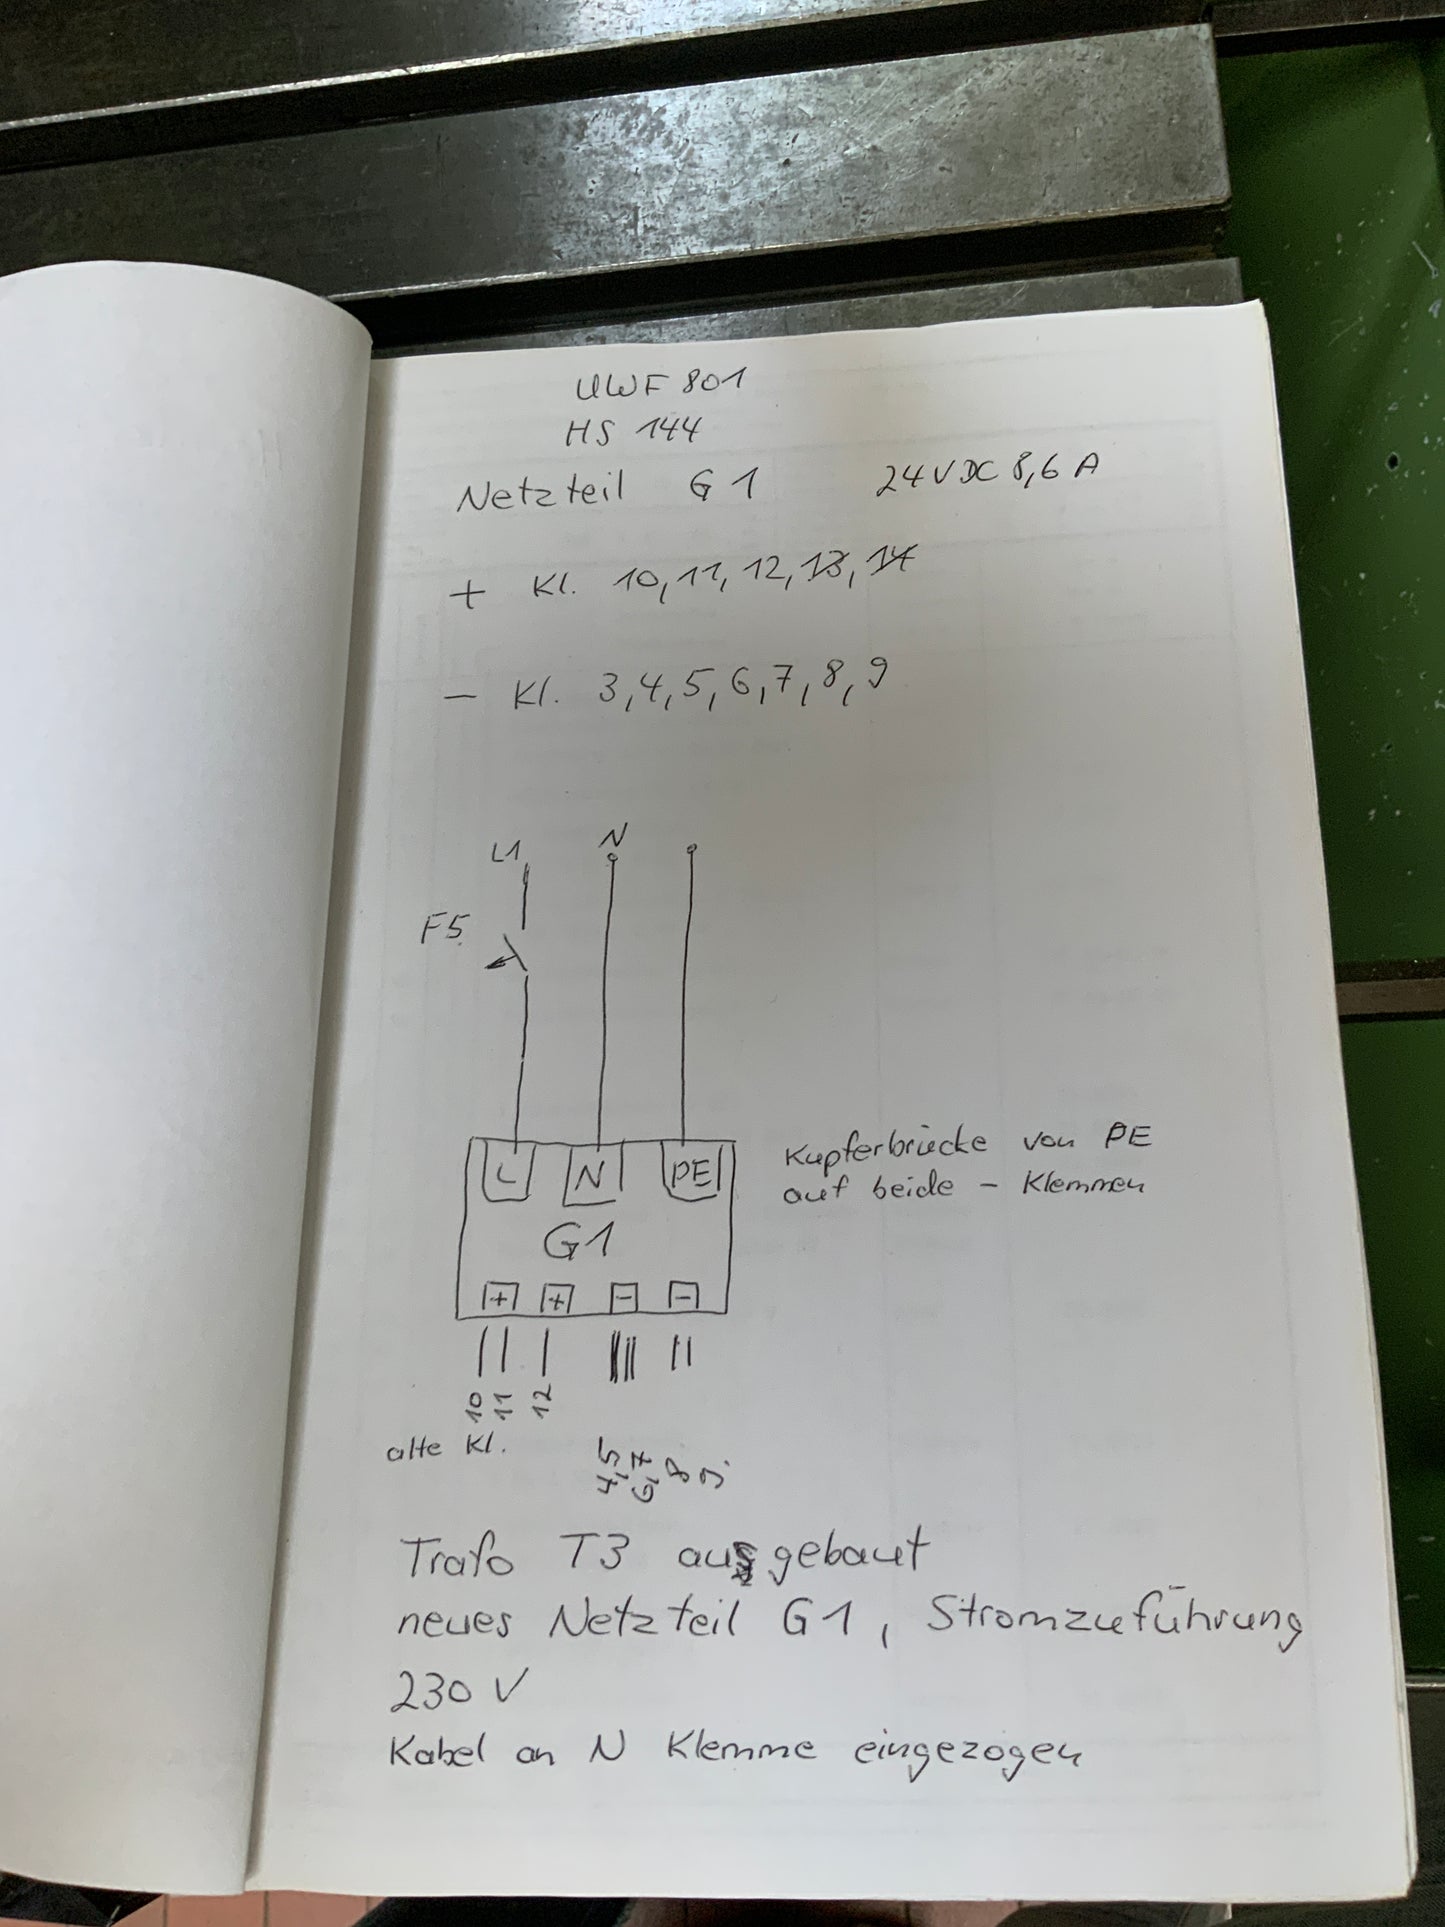 UWF 801
HS 144
Netzteil G1 24VDC 8,6 A
+ Kl. 10, 11, 12, 13, 14
- Kl. 3, 4, 5, 6, 7, 8, 9
L1 N
F5
L N PE
Kupferbrücke von PE
auf beide - Klemmen
G1
+ + - -
10 11 12
alte Kl.
4,5 6,7 8 9
Trafo T3 ausgebaut
neues Netzteil G1, Stromzuführung
230 V
Kabel an N Klemme eingezogen